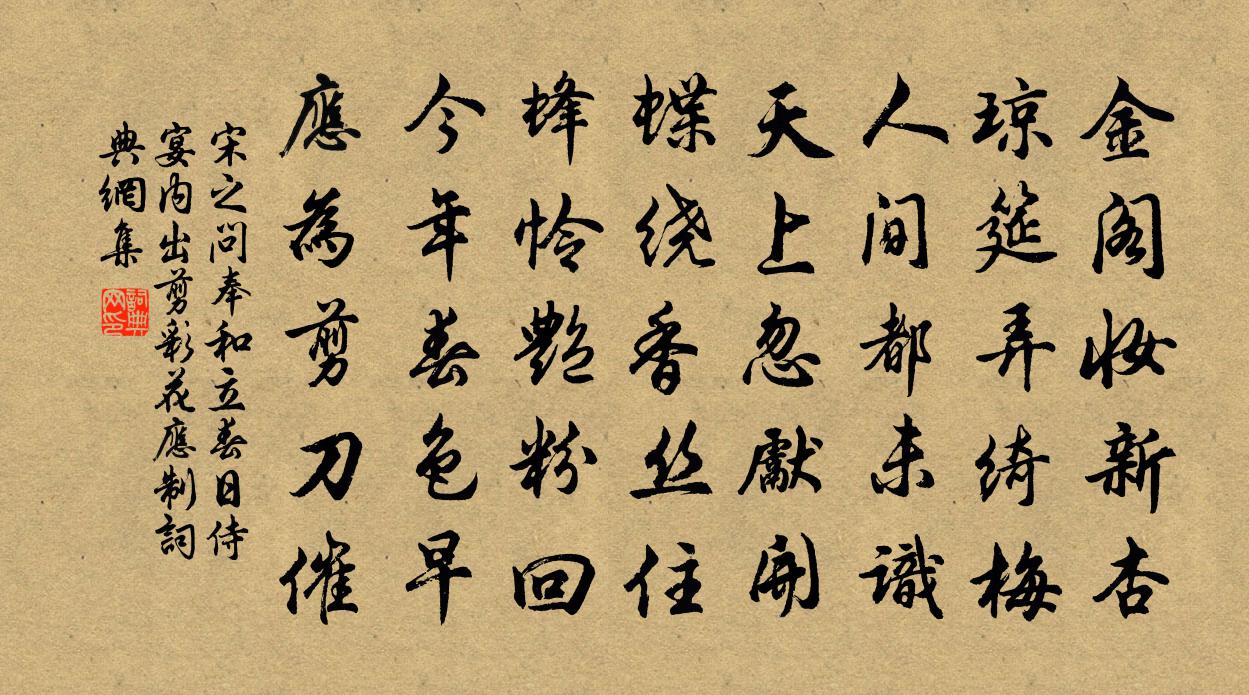 金阁妆新杏
琼筵弄绮梅
人间都未識
天上忽獻開
蝶绕香丝住
蜂怜艷粉回
今年春色早
應為剪刀催
宋之问奉和立春日侍
宴内出剪彩花應制詞
典網集
詞典网印